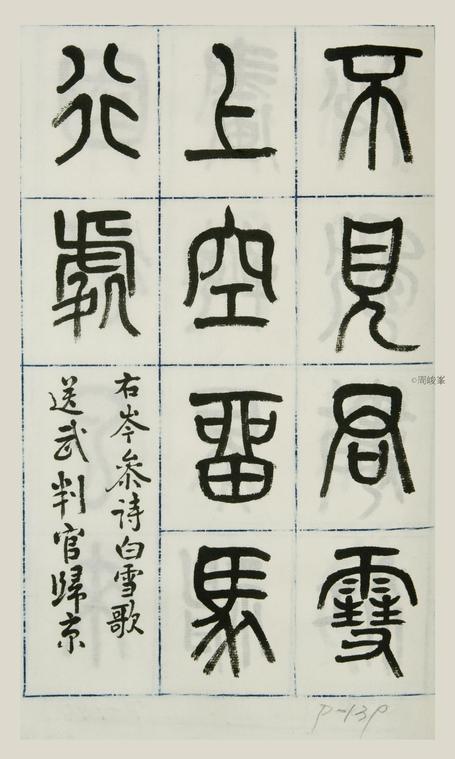 不見君雪
上空留馬
行處
右岑參詩白雪歌
送武判官歸京
©周峻峯
P-139